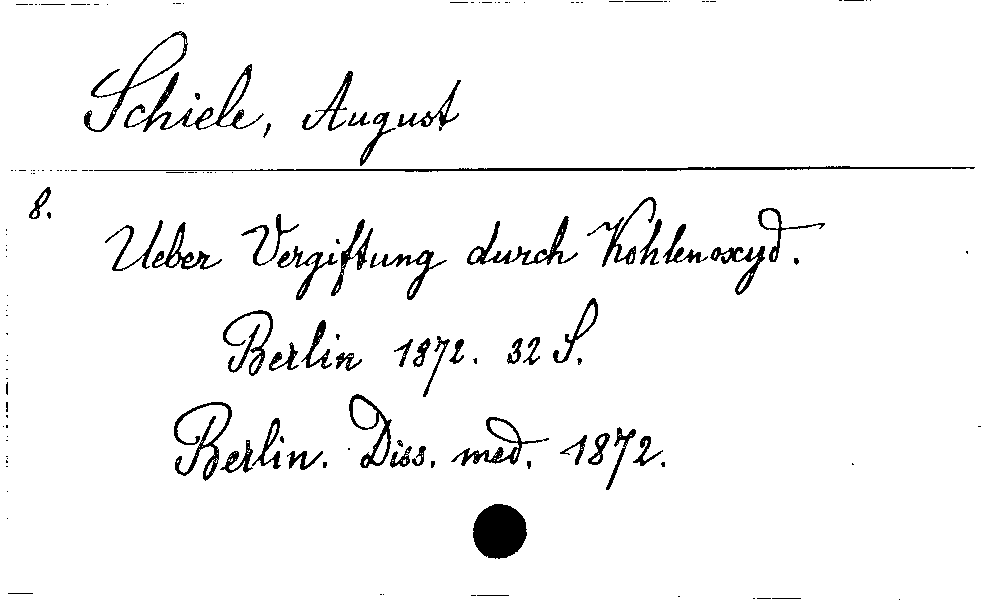 Schiele, August
8.
Ueber Vergiftung durch Kohlenoxyd.
Berlin 1872. 32 S.
Berlin. Diss. med. 1872.